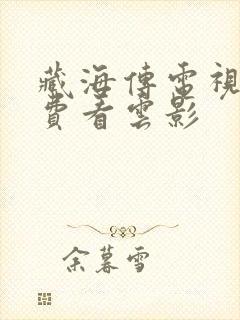 藏海傳電視
費看雲影
余暮雪